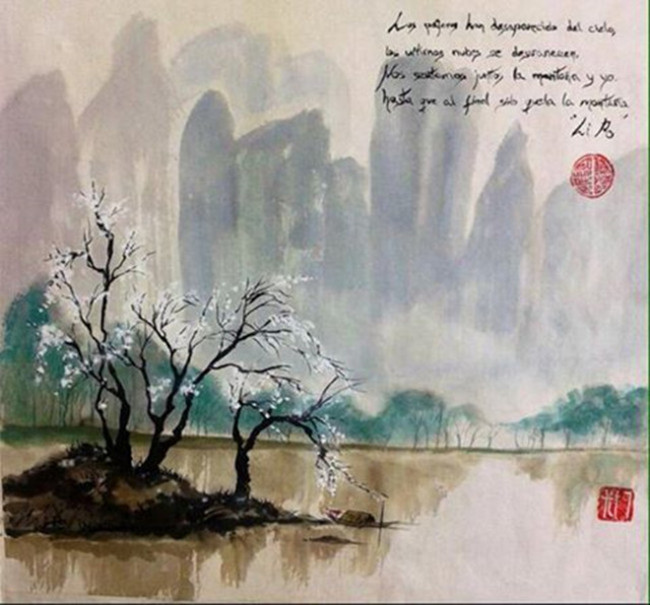 Los pájaros han desaparecido del cielo,
las ultimas nubes se desvanecen.
Nos sentamos juntos, la montaña y yo.
hasta que al final solo queda la montaña.
"Li Po"